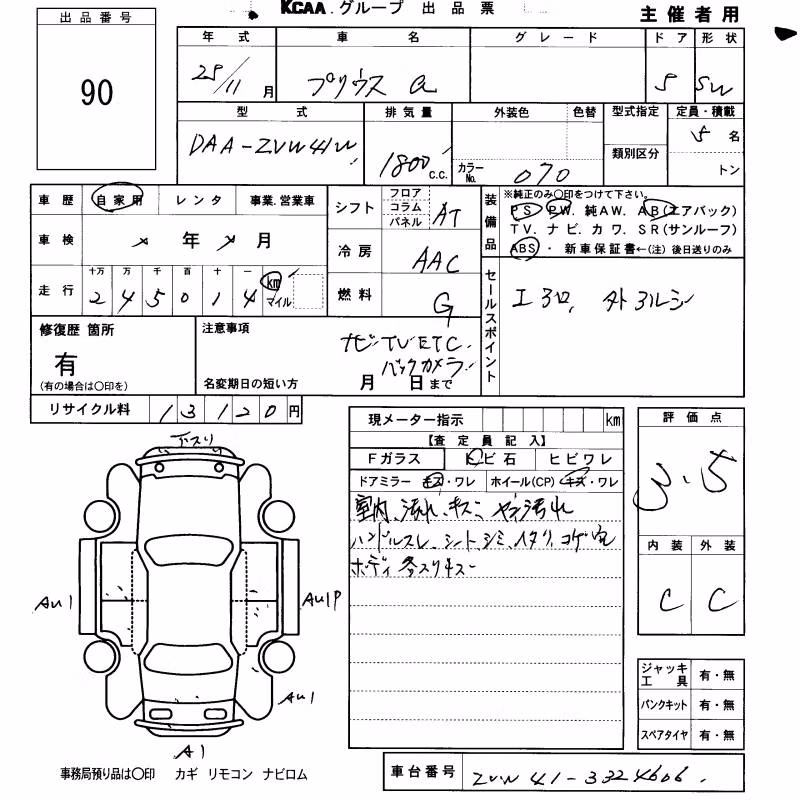 KCAA.グループ 出品票
主催者用
出品番号
90
年式 車名 グレード ドア 形状
25/11月 プリウス α 5 SW
型式 排気量 外装色 色替 型式指定 定員・積載
DAA-ZVW41W 1800 C.C. カラーNo. 070 類別区分 5名
トン
車歴 自家用 レンタ 事業.営業車
シフト フロア コラム パネル AT
装備品 ※純正のみ〇印をつけて下さい。
PS PW. 純AW. AB(エアバック)
TV. ナビ. カワ. SR(サンルーフ)
ABS ・ 新車保証書←(注) 後日送りのみ
車検 年 月
冷房 AAC
走行 十万 万 千 百 十 一 km マイル
2 4 5 0 1 4
燃料 G
セールスポイント
修復歴 箇所
有
(有の場合は〇印を)
注意事項
ナビ TV ETC.
バックカメラ
名変期日の短い方 月 日まで
リサイクル料 13120円
現メーター指示 km
【査定員記入】
Fガラス トビ石 ヒビワレ
ドアミラー キズ・ワレ ホイール(CP) キズ・ワレ
室内、汚れ、キズ
ハンドルスレ、シートシミ、コゲ穴
評価点
3.5
内装 外装
C C
下スリ
AU1
AU1P
AU1
A1
ジャッキ工具 有・無
パンクキット 有・無
スペアタイヤ 有・無
事務局預り品は〇印 カギ リモコン ナビロム
車台番号 ZVW41-3324606